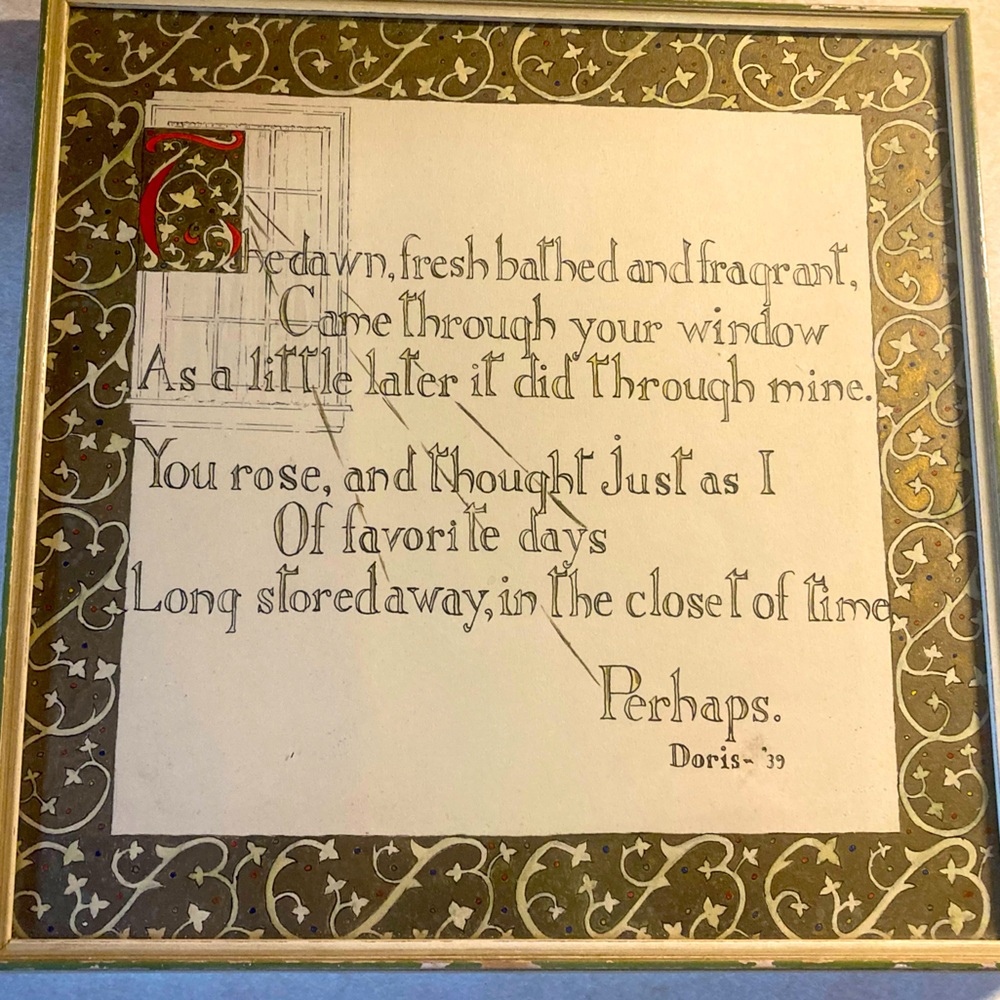 The dawn, fresh bathed and fragrant,
Came through your window
As a little later it did through mine.
You rose, and thought Just as I
Of favorite days
Long stored away, in the closet of time
Perhaps.
Doris~ '39